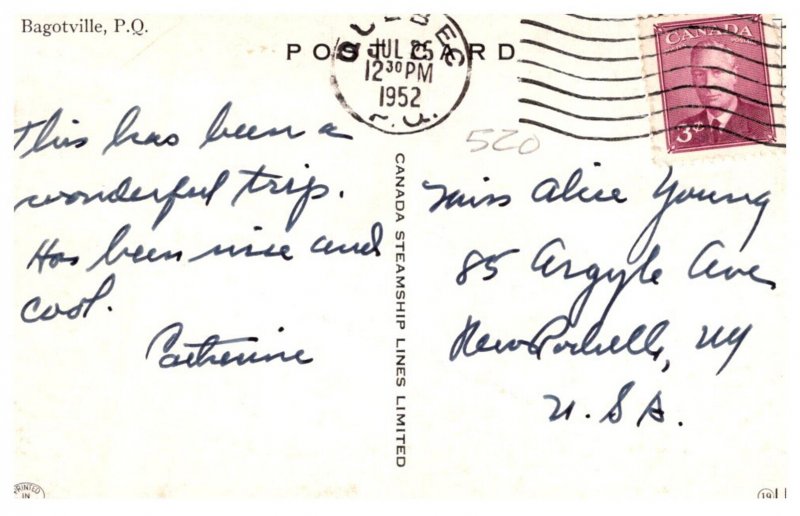 Bagotville, P.Q.
POST CARD
QUEBEC
JUL 25
12 30 PM
1952
P.Q.
CANADA
3
520
This has been a
wonderful trip.
Has been nice and
cool.
Catherine
CANADA STEAMSHIP LINES LIMITED
Miss Alice Young
85 Argyle Ave
New Rochelle, NY
U.S.A.
PRINTED
IN
19